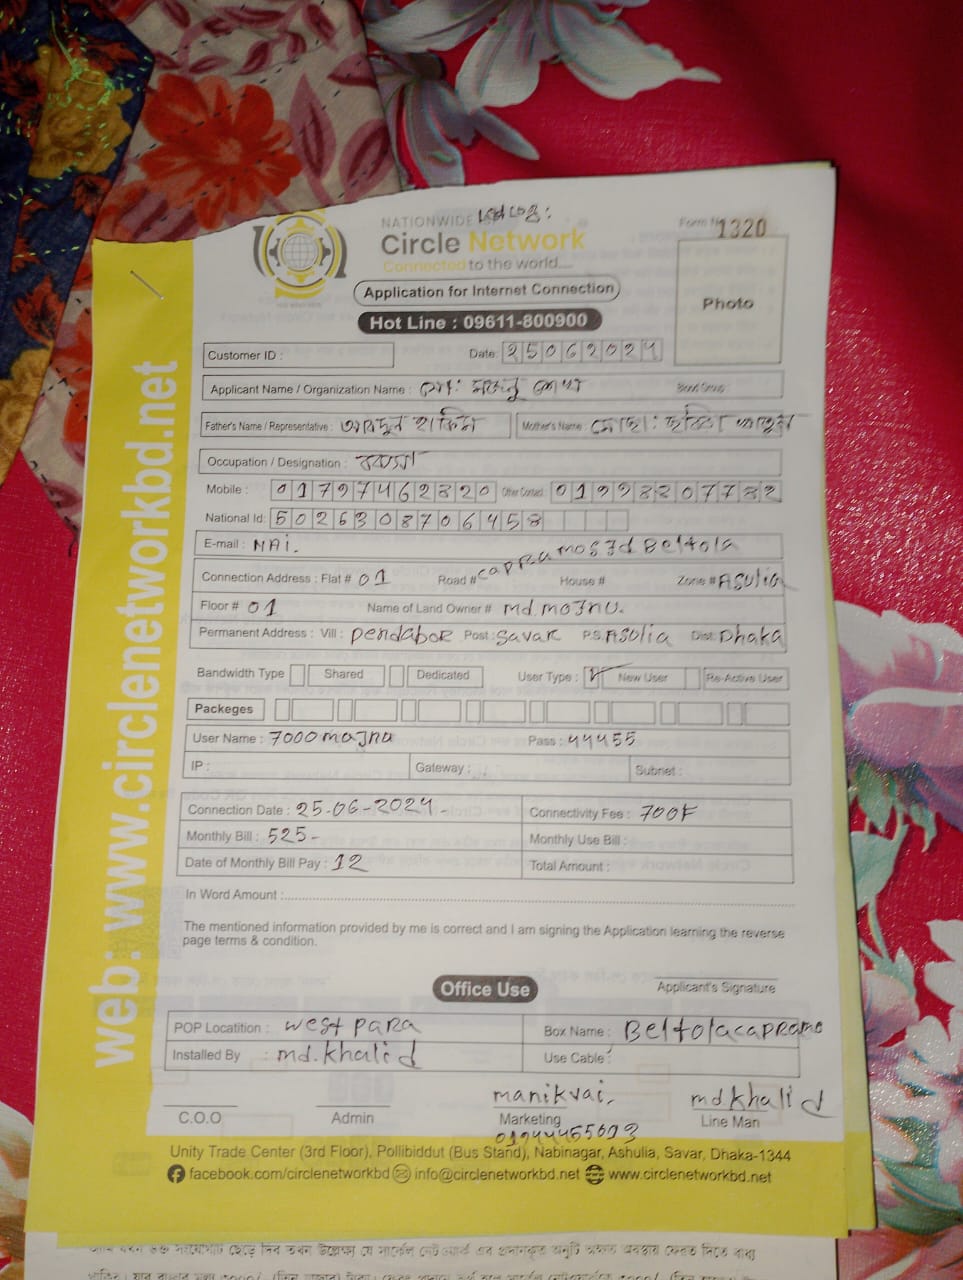 NATIONWIDE ISP
Form No 1320
Circle Network
Connected to the world.....
Application for Internet Connection
Photo
Hot Line : 09611-800900
Customer ID :
Date: 25062024
Applicant Name / Organization Name : মোঃ মজনু
Blood Group :
Father's Name / Representative : আবদুল হাকিম
Mother's Name :
Occupation / Designation : ব্যবসা
Mobile : 01797462320 Other Contact : 01998207732
National Id: 5026308706458
E-mail : NAi.
Connection Address : Flat # 01 Road # capramosJd Beltola House # Zone # ASulia
Floor # 01 Name of Land Owner # md.moJnu.
Permanent Address : Vill : pendaboR Post : SavaR P.S ASulia Dist: Dhaka
Bandwidth Type Shared Dedicated User Type : New User Re-Active User
Packeges
User Name : 7000maJnu Pass : 44455
IP : Gateway : Subnet :
Connection Date : 25-06-2024 Connectivity Fee : 700
Monthly Bill : 525- Monthly Use Bill :
Date of Monthly Bill Pay : 12 Total Amount :
In Word Amount :
The mentioned information provided by me is correct and I am signing the Application learning the reverse
page terms & condition.
Applicant's Signature
Office Use
POP Locatition : west paRa Box Name : Beltolacapramo
Installed By : md.khalid Use Cable :
manikvai, md khalid
C.O.O Admin Marketing Line Man
Unity Trade Center (3rd Floor), Pollibiddut (Bus Stand), Nabinagar, Ashulia, Savar, Dhaka-1344
facebook.com/circlenetworkbd info@circlenetworkbd.net www.circlenetworkbd.net
web: www.circlenetworkbd.net